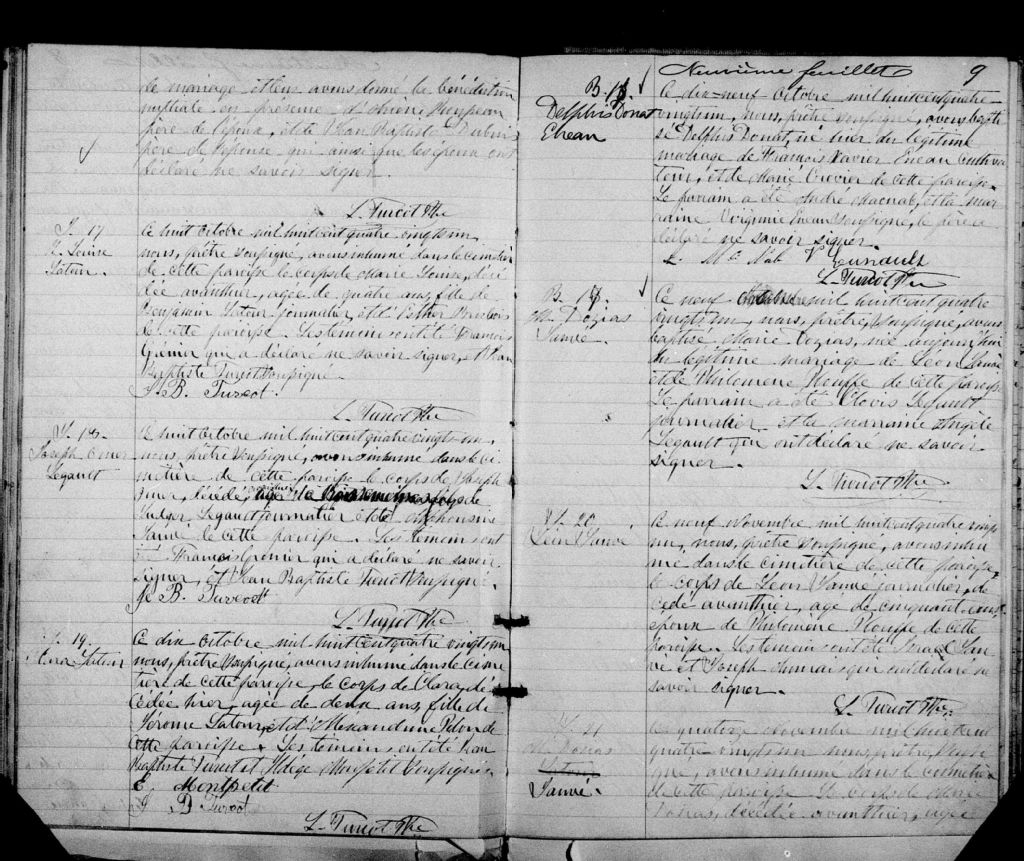 de mariage et leur avons donné la bénédiction
nuptiale en présence
père de l'époux, et de Jean Baptiste
père de l'épouse qui ainsi que les époux ont
déclaré ne savoir signer.
L. Turcot Ptre
S. 17
M. Louise
Latour.
Ce huit Octobre mil huit cent quatre vingt un,
nous, prêtre soussigné, avons inhumé dans le cimetière
de cette paroisse le corps de Marie Louise, décé
dée avant hier, agée de quatre ans, fille de
Benjamin Latour journalier et d'Esther
de cette paroisse. Les témoins ont été François
Grenier qui a déclaré ne savoir signer, et Jean
Baptiste Turcot soussigné.
J. B. Turcot.
L. Turcot Ptre
S. 18.
Joseph Omer
Legault
Ce huit Octobre mil huit cent quatre vingt-un,
nous, prêtre soussigné, avons inhumé dans le ci
metière de cette paroisse le corps de Joseph
Omer, décédé
Legault journalier et de Alphonsine
Sauvé de cette paroisse. Les témoins ont
été François Grenier qui a déclaré ne savoir
signer, et Jean Baptiste Turcot soussigné.
J. B. Turcot
L. Turcot Ptre
S. 19.
Clara Latour
Ce dix Octobre mil huit cent quatre vingt un
nous, prêtre soussigné, avons inhumé dans le cime
tière de cette paroisse le corps de Clara, dé
cédée hier, agée de deux ans, fille de
Jérome Latour, et d'Alexandrine Pilon de
cette paroisse. Les témoins ont été Jean
Baptiste Turcot et Montpetit soussignés
E. Montpetit
J B Turcot
L. Turcot Ptre
Neuvième feuillet 9
B. 18.
Delphis Donat
Enéan
Ce dix-neuf Octobre mil huit cent quatre-
vingt un, nous, prêtre soussigné, avons bapti
sé Delphis Donat, né hier du légitime
mariage de François Xavier Enéan cultiva
teur, et de Marie Cuvier de cette paroisse.
Le parrain a été André Macnab, et la mar
raine Virginie Enéan soussigné, le père a
déclaré ne savoir signer.
Mc Nab
L. Turcot Ptre
B. 19.
M. Dozias
Sauvé.
Ce neuf mil huit cent quatre
vingt un, nous, prêtre, soussigné, avons
baptisé Marie Dozias, née aujourd'hui
du légitime mariage de Léon Sauvé
et de Philomène Plouffe de cette paroisse
Le parrain a été Clovis Legault
journalier et la marraine Angèle
Legault qui ont déclaré ne savoir
signer.
L. Turcot Ptre
S. 20.
Léon Sauvé
Ce neuf Novembre mil huit cent quatre vingt
un, nous, prêtre soussigné, avons inhu
mé dans le cimetière de cette paroisse
le corps de Léon Sauvé journalier, dé
cédé avant hier, agé de cinquante ans,
époux de Philomène Plouffe de cette
paroisse. Les témoins ont été Israel Sau
vé et Joseph qui ont déclaré ne
savoir signer.
L. Turcot Ptre
S. 21
M. Dozias
Sauvé.
Ce quatorze Novembre mil huit cent
quatre vingt un nous, prêtre, soussi
gné, avons inhumé dans le cimetiè
de cette paroisse le corps de Marie
Dozias, décédée avant hier, agée